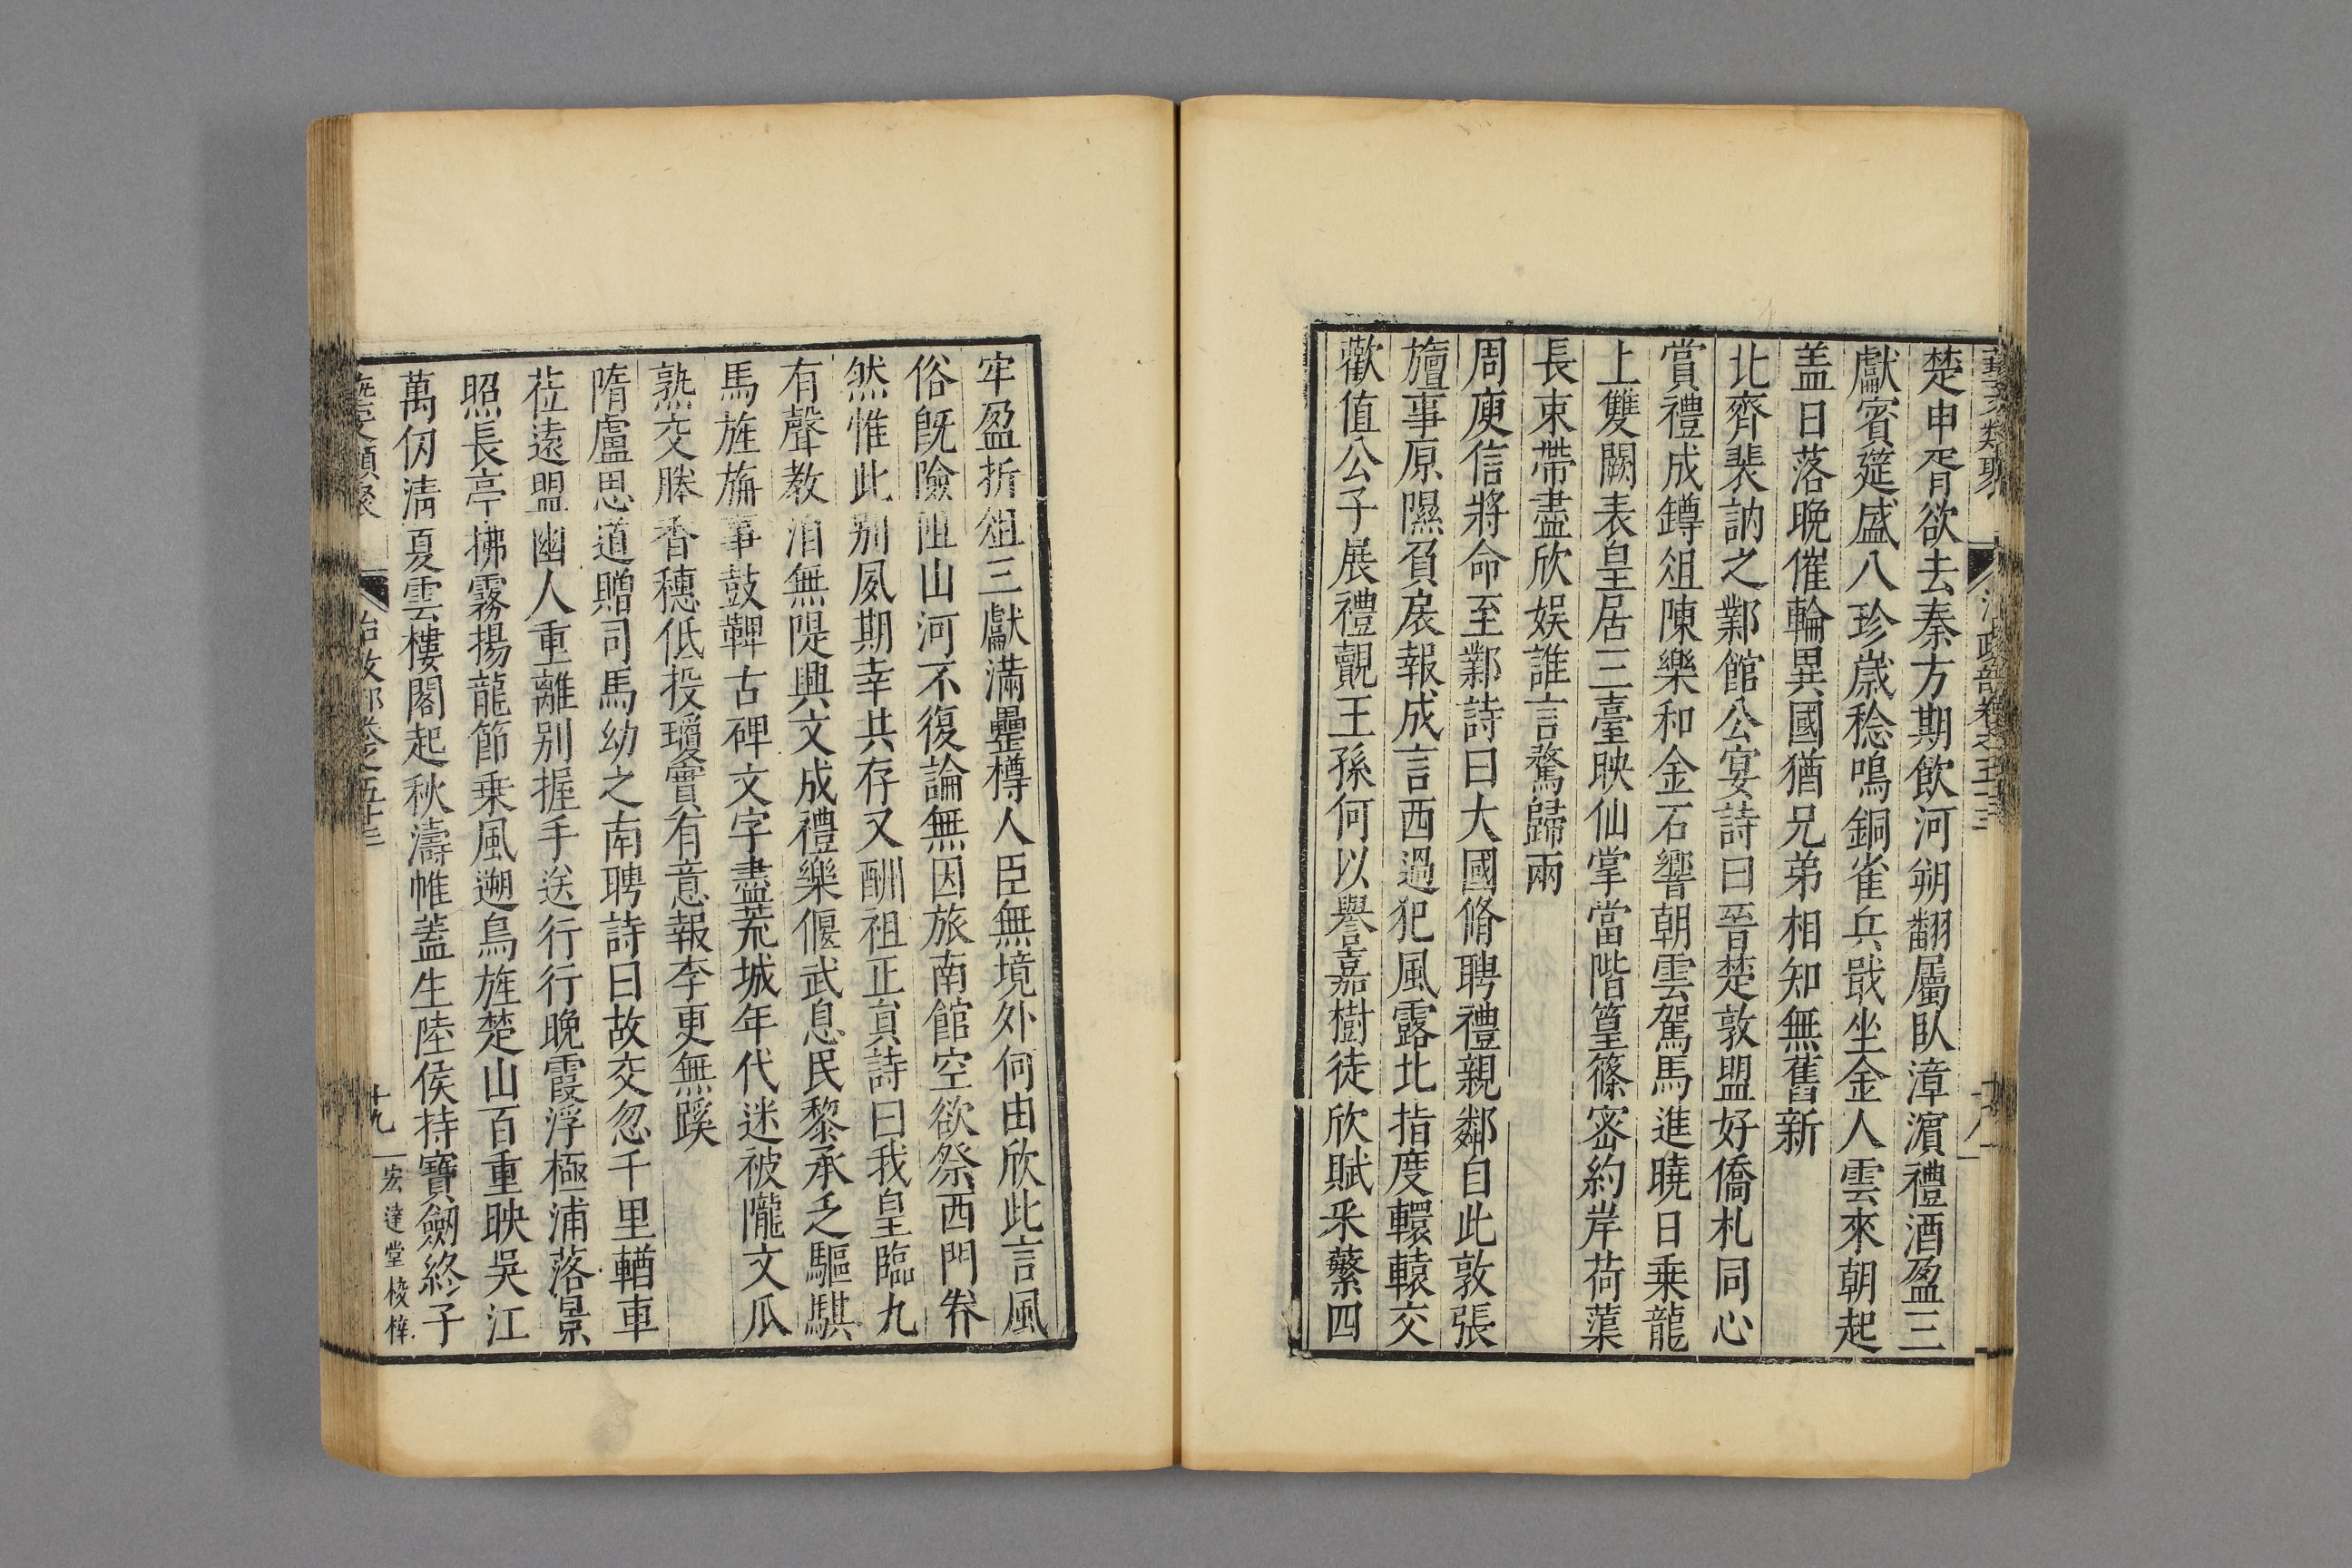 藝文類聚 治政部卷之五十三 十八
楚申胥欲去秦方期飲河朔翻屬臥漳濵禮酒盈三
獻賓筵盛八珍歳稔鳴銅雀兵戢坐金人雲來朝起
盖日落晚催輪異國猶兄弟相知無舊新
北齊裴訥之鄴館公宴詩曰晉楚敦盟好僑札同心
賞禮成鐏俎陳樂和金石響朝雲駕馬進曉日乗龍
上雙闕表皇居三臺映仙掌當階篁篠密約岸荷蕖
長束帶盡欣娱誰言騖歸兩
周庾信將命至鄴詩曰大國脩聘禮親鄰自此敦張
旜事原隰負扆報成言西過犯風露北指度轘轅交
歡值公子展禮覿王孫何以譽嘉樹徒欣賦采蘩四
牢盈折俎三獻滿罍樽人臣無境外何由欣此言風
俗既險阻山河不復論無因旅南館空欲祭西門眷
然惟此别夙期幸共存又酬祖正員詩曰我皇臨九
有聲教洎無隄興文成禮樂偃武息民黎承乏驅騏
馬旌旃事鼓鞞古碑文字盡荒城年代迷被隴文瓜
熟交塍香穗低投瓊實有意報李更無蹊
隋盧思道贈司馬幼之南聘詩曰故交忽千里輶車
莅遠盟幽人重離别握手送行行晚霞浮極浦落景
照長亭拂霧揚龍節乗風遡鳥旌楚山百重映吳江
萬仞清夏雲樓閣起秋濤帷蓋生陸侯持寶劒終子
藝文類聚 治政部卷之五十三 十九 宏達堂校梓